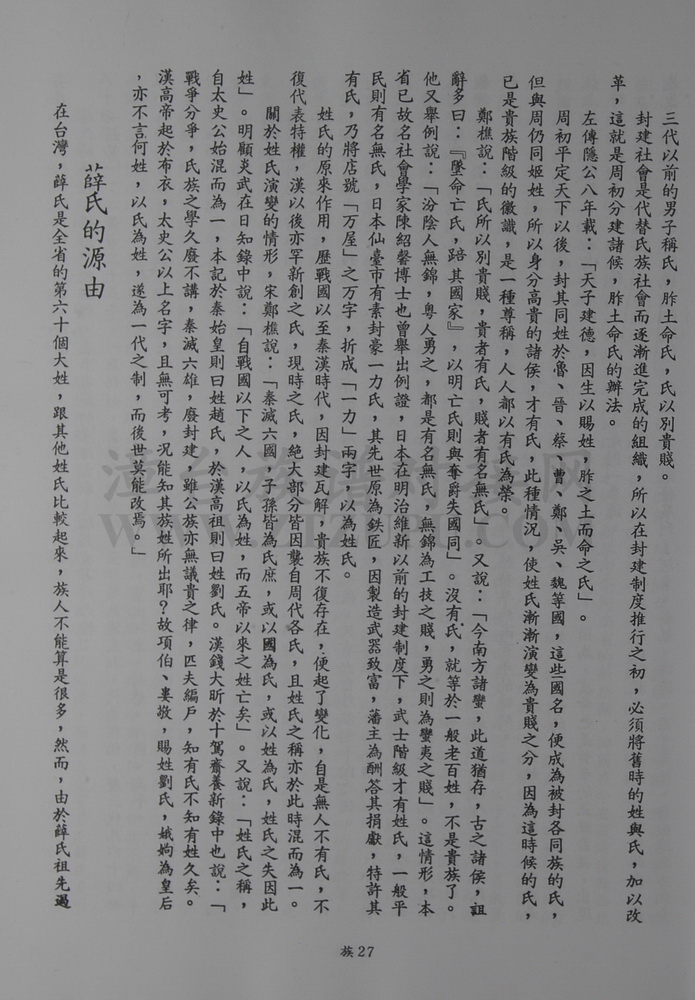 三代以前的男子稱氏，胙土命氏，氏以別貴賤。
封建社會是代替氏族社會而逐漸進完成的組織，所以在封建制度推行之初，必須將舊時的姓與氏，加以改
革，這就是周初分建諸候，胙土命氏的辦法。
左傳隱公八年載：「天子建德，因生以賜姓，胙之土而命之氏」。
周初平定天下以後，封其同姓於魯、晉、蔡、曹、鄭、吳、魏等國，這些國名，便成為被封各同族的氏，
但與周仍同姬姓，所以身分高貴的諸候，才有氏，此種情況，使姓氏漸漸演變為貴賤之分，因為這時候的氏，
已是貴族階級的徽識，是一種尊稱，人人都以有氏為榮。
鄭樵說：「氏所以別貴賤，貴者有氏，賤者有名無氏」。又說：「今南方諸蠻，此道猶存，古之諸候，詛
辭多曰：『墜命亡氏，踣其國家』，以明亡氏則與奪爵失國同」。沒有氏，就等於一般老百姓，不是貴族了。
他又舉例說：「汾陰人無錦，粵人勇之，都是有名無氏，無錦為工技之賤，勇之則為蠻夷之賤」。這情形，本
省已故名社會學家陳紹馨博士也曾舉出例證，日本在明治維新以前的封建制度下，武士階級才有姓氏，一般平
民則有名無氏，日本仙臺市有素封豪一力氏，其先世原為鉄匠，因製造武器致富，藩主為酬答其捐獻，特許其
有氏，乃將店號「万屋」之万字，折成「一力」兩字，以為姓氏。
姓氏的原來作用，歷戰國以至秦漢時代，因封建瓦解，貴族不復存在，便起了變化，自是無人不有氏，不
復代表特權，漢以後亦罕新創之氏，現時之氏，絕大部分皆因襲自周代各氏，且姓氏之稱亦於此時混而為一。
關於姓氏演變的情形，宋鄭樵說：「秦滅六國，子孫皆為民庶，或以國為氏，或以姓為氏，姓氏之失因此
姓」。明顧炎武在日知錄中說：「自戰國以下之人，以氏為姓，而五帝以來之姓亡矣」。又說：「姓氏之稱，
自太史公始混而為一，本記於秦始皇則曰姓趙氏，於漢高祖則曰姓劉氏。漢錢大昕於十駕齋養新錄中也說：「
戰爭分爭，氏族之學久廢不講，秦滅六雄，廢封建，雖公族亦無議貴之律，匹夫編戶，知有氏不知有姓久矣。
漢高帝起於布衣，太史公以上名字，且無可考，況能知其族姓所出耶？故項伯、婁敬，賜姓劉氏，娥姁為皇后
，亦不言何姓，以氏為姓，遂為一代之制，而後世莫能改焉。」
薛氏的源由
在台灣，薛氏是全省的第六十個大姓，跟其他姓氏比較起來，族人不能算是很多，然而，由於薛氏祖先過
族27